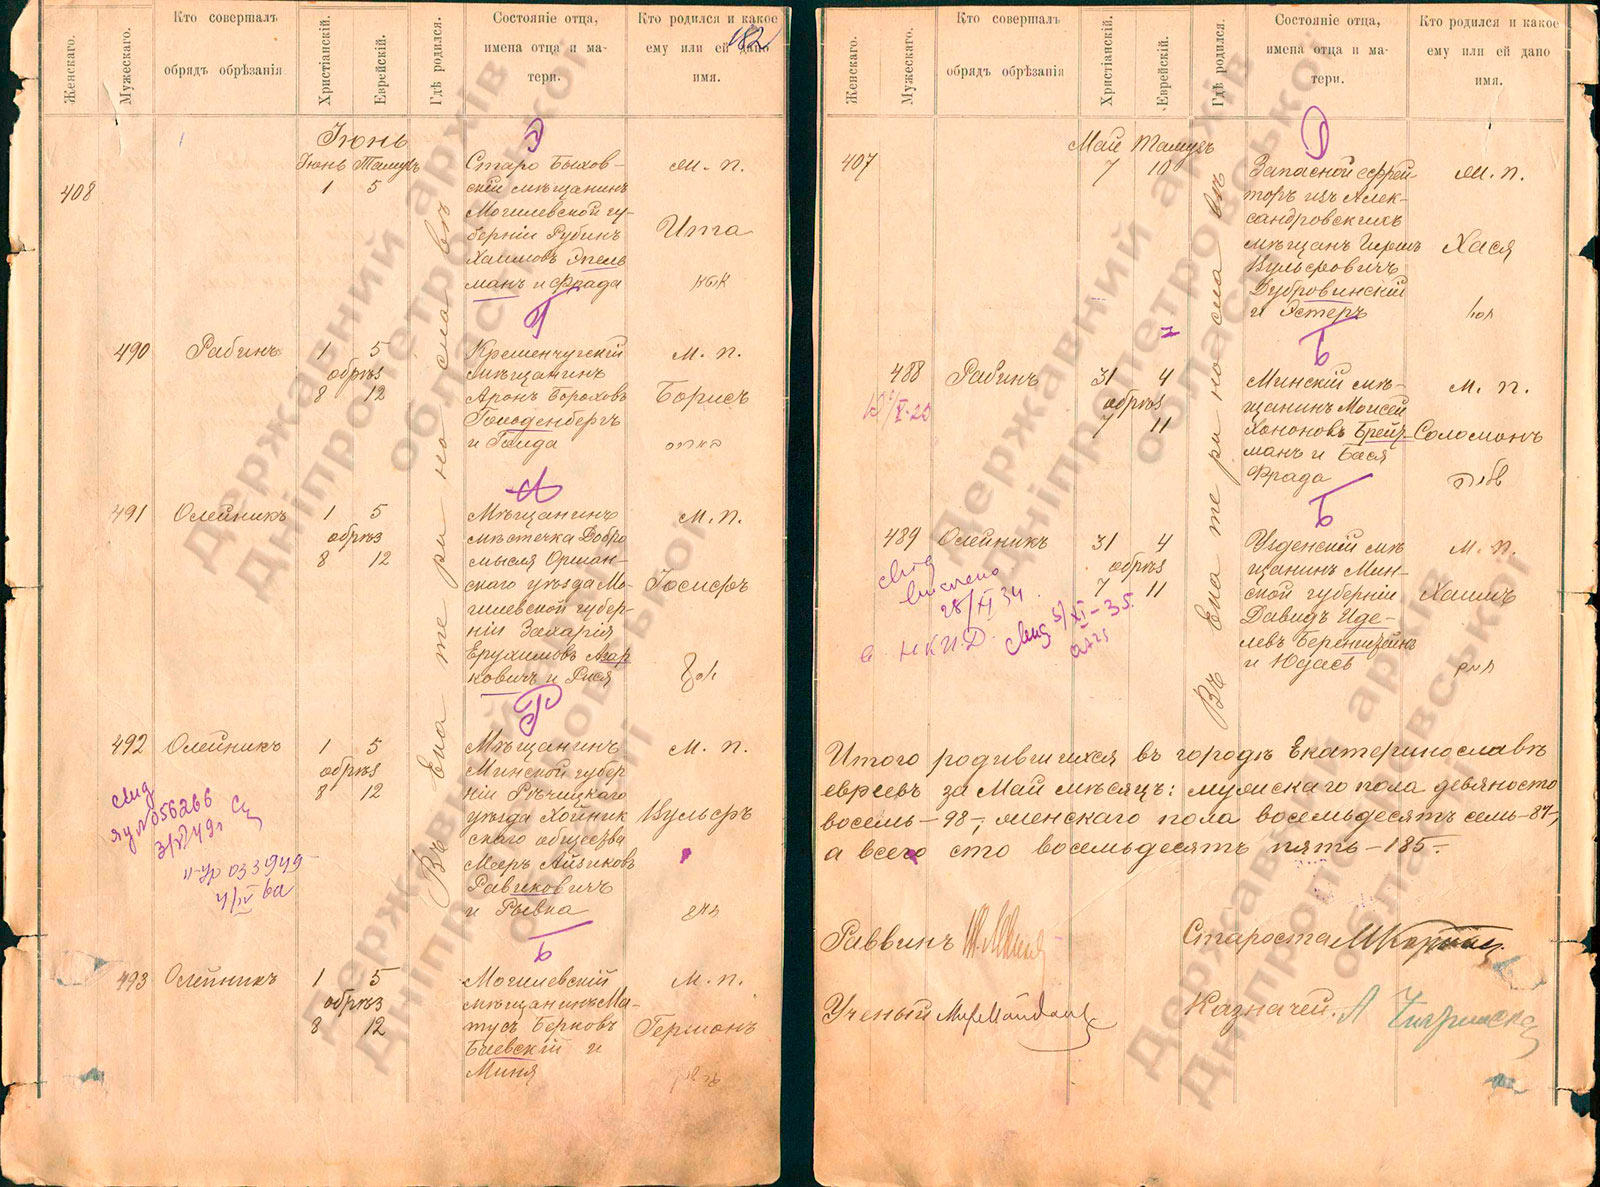 Женскаго.
Мужескаго.
Кто совершалъ
обрядъ обрѣзанія
Христіанскій.
Еврейскій.
Гдѣ родился.
Состояніе отца,
имена отца и ма-
тери.
Кто родился и какое
ему или ей дано
имя.
182
Іюнь
Іюнь Тамузъ
408
1 5
Старо Быхов-
скій мѣщанинъ
Могилевской гу-
берніи Рубинъ
Хаимовъ Эпель
манъ и Фрада
М. п.
Ита
Въ Екатеринославѣ
490
Рабинъ
1 5
обрѣз
8 12
Кременчугскій
мѣщанинъ
Аронъ Бороховъ
Голоденбергъ
и Голда
М. п.
Борисъ
491
Олейникъ
1 5
обрѣз
8 12
Мѣщанинъ
мѣстечка Добро
мысля Оршан-
скаго уѣзда Мо-
гилевской губер-
ніи Захарія
Ерухимовъ Азар
ковичъ и Рися
М. п.
Іосифъ
492
Олейникъ
1 5
обрѣз
8 12
Мѣщанинъ
Минской губер
ніи Рѣчицкаго
уѣзда Хойник
скаго общества
Мееръ Айзиковъ
Равиковичъ
и Рывка
М. п.
Вульфъ
493
Олейникъ
1 5
обрѣз
8 12
Могилевскій
мѣщанинъ Ма-
тусъ Берковъ
Баевскій и
Миня
М. п.
Германъ
Женскаго.
Мужескаго.
Кто совершалъ
обрядъ обрѣзанія
Христіанскій.
Еврейскій.
Гдѣ родился.
Состояніе отца,
имена отца и ма-
тери.
Кто родился и какое
ему или ей дано
имя.
Май Тамузъ
407
7 10
Запасной ефрей
торъ изъ Алек-
сандровскихъ
мѣщанъ Гиршъ
Вульфовичъ
Дубровинскій
и Эстеръ
М. п.
Хася
Въ Екатеринославѣ
488
Рабинъ
31 4
обрѣз
7 11
Минскій мѣ-
щанинъ Моисей
Хононовъ Брейз-
манъ и Бася
Фрада
М. п.
Соломонъ
489
Олейникъ
31 4
обрѣз
7 11
Узденскій мѣ
щанинъ Мин-
ской губерніи
Давидъ Иде-
левъ
и Юдасъ
М. п.
Хаимъ
28/XI 34
НКИД
5/XI-35
Итого родившихся въ городѣ Екатеринославѣ
евреевъ за Май мѣсяцъ: мужскаго пола девяносто
восемь-98-, женскаго пола восемьдесятъ семь-87-,
а всего сто восемьдесятъ пять-185-.
Раввинъ
Староста
Ученый
Казначей
Державний архів
Дніпропетровської
області